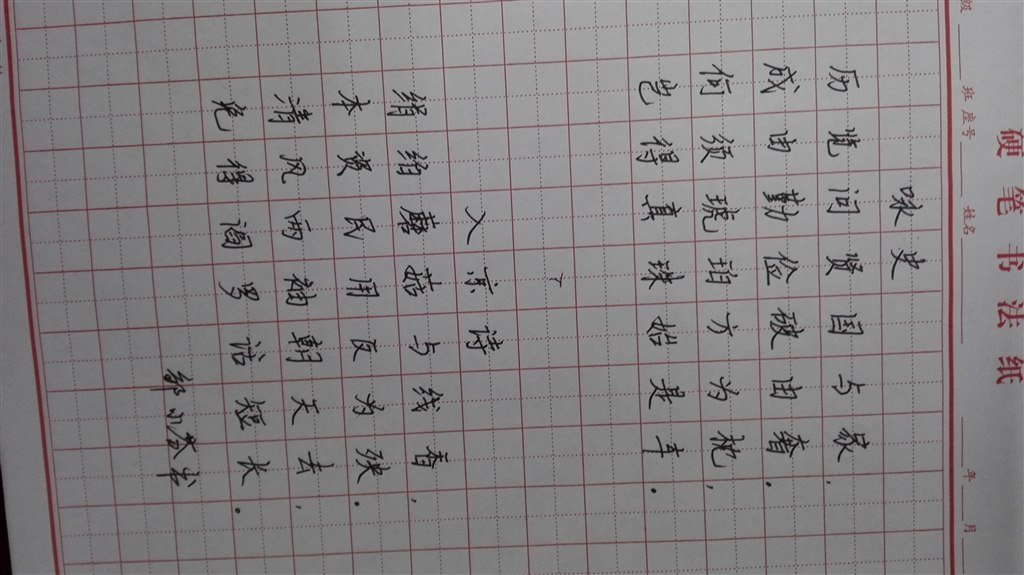 硬笔书法纸
级 班 座号 姓名 年 月
咏史
历览问贤国与家，
成由勤俭破由奢。
何须琥珀方为枕，
岂得真珠始是车。
入京诗
绢帕蘑菇与线香，
本资民用反为殃。
清风两袖朝天去，
免得阎罗话短长。